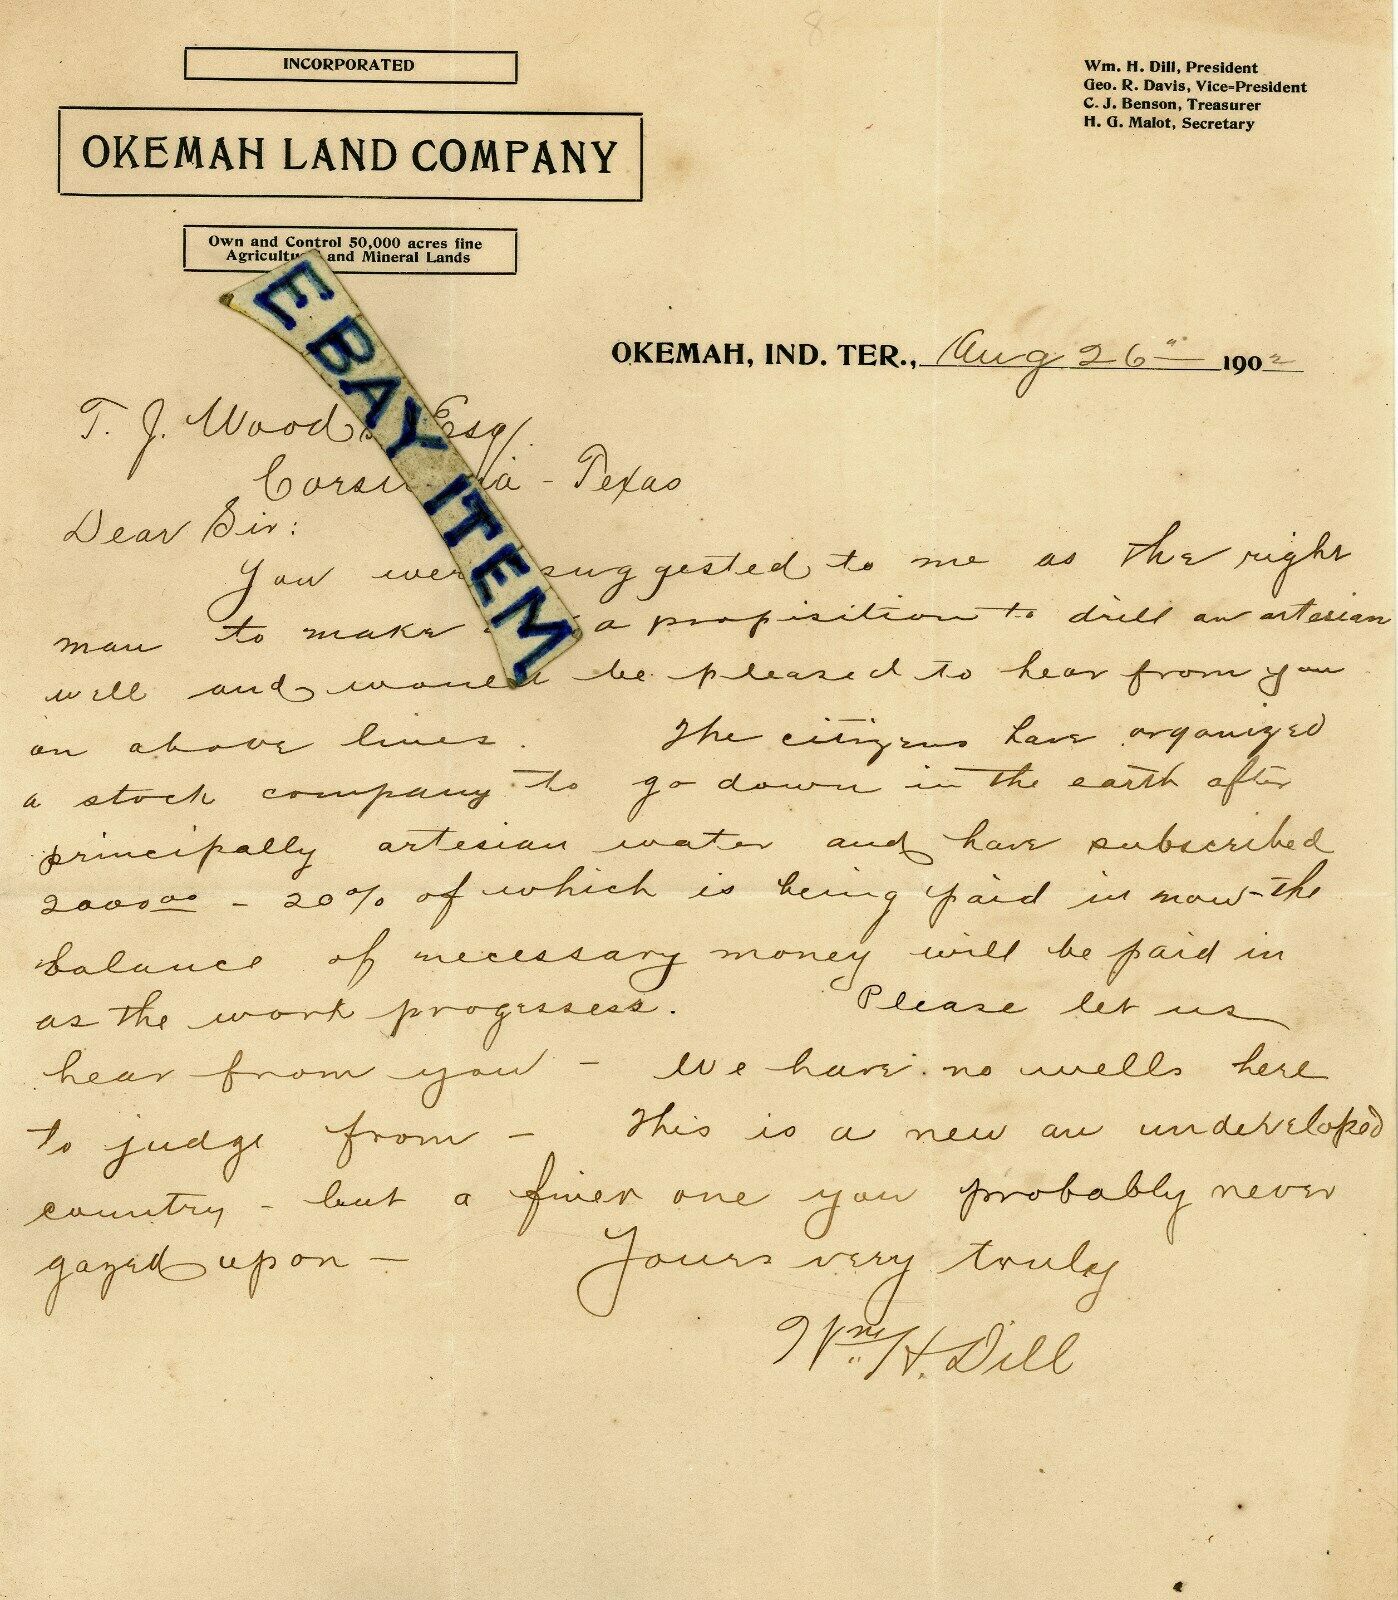 INCORPORATED
OKEMAH LAND COMPANY
Own and Control 50,000 acres fine
Agricultu and Mineral Lands
Wm. H. Dill, President
Geo. R. Davis, Vice-President
C. J. Benson, Treasurer
H. G. Malot, Secretary
E BAY ITEM
OKEMAH, IND. TER., Aug 26" 1902
T. J. Wood Esq
Texas
Dear Sir:
You were suggested to me as the right
man to make a propisition to drill an artesian
well and would be pleased to hear from you
on above lines. The citizens have organized
a stock company to go down in the earth after
principally artesian water and have subscribed
2000 00 - 20% of which is being paid in now - the
balance of necessary money will be paid in
as the work progessess. Please let us
hear from you - We have no wells here
to judge from - This is a new an undeveloped
country - but a finer one you probably never
gazed upon - Yours very truly
Wm H. Dill